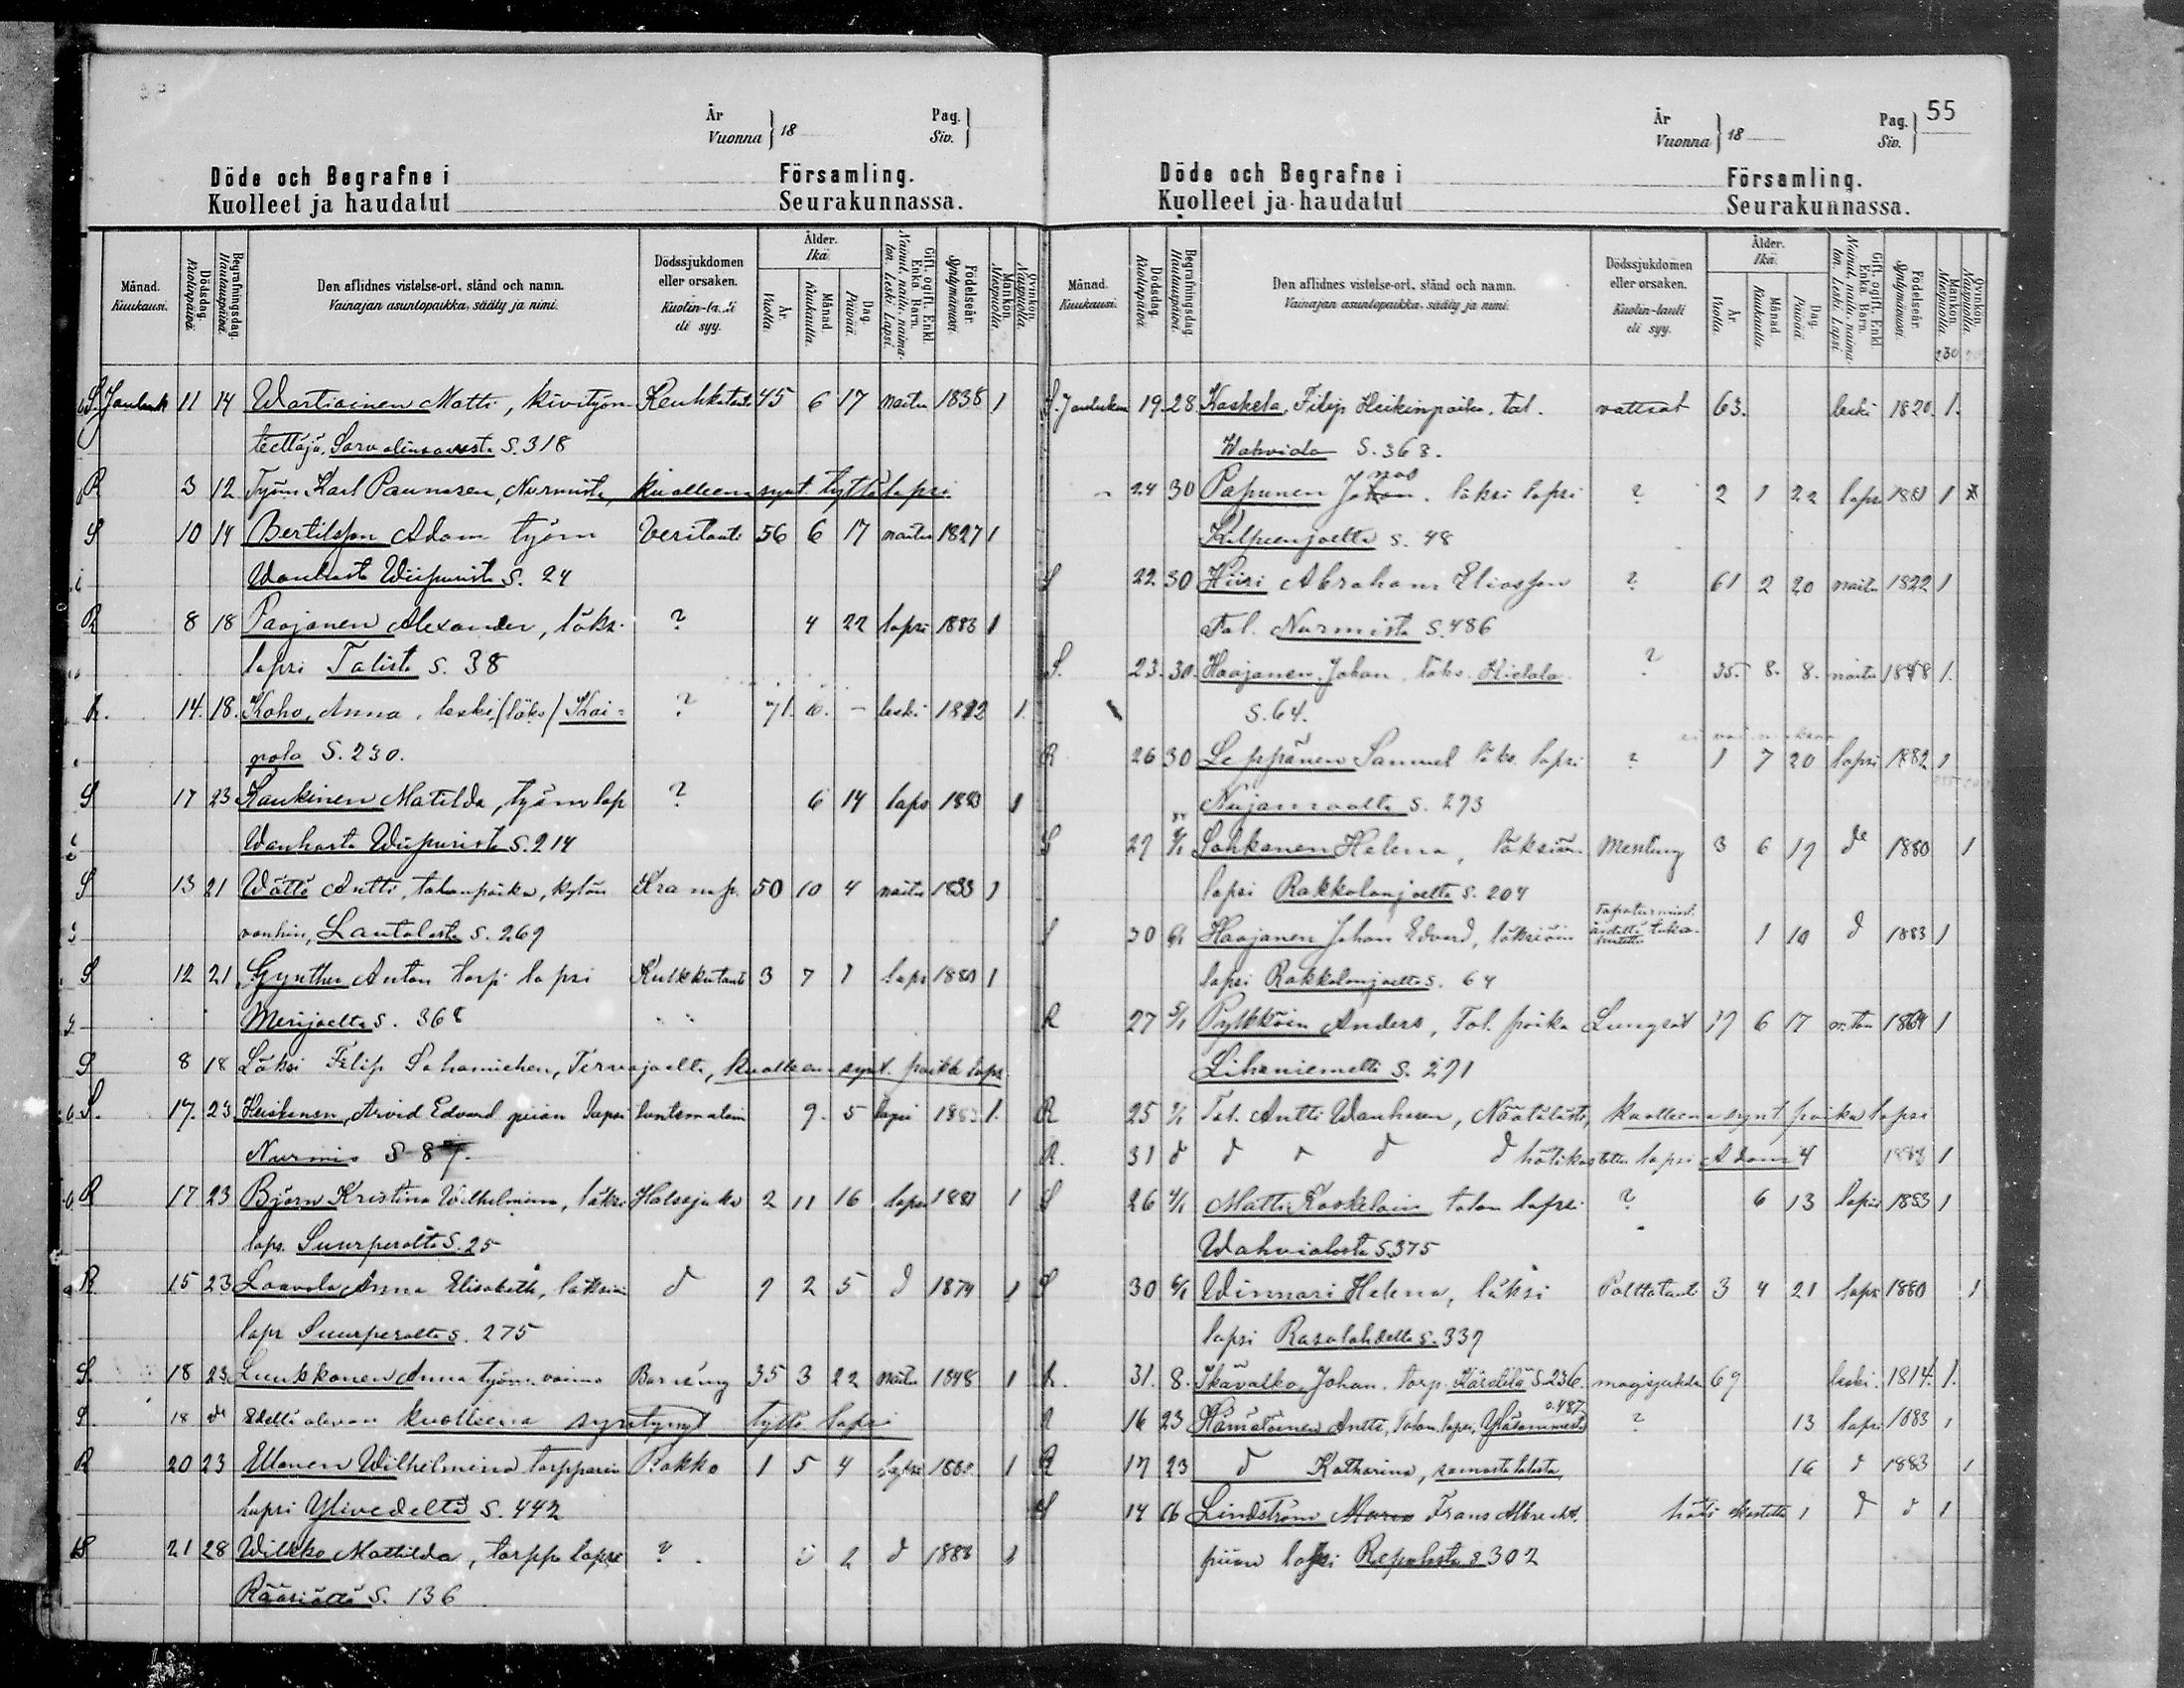 År
Vuonna } 18
Pag.
Siv. }
Döde och Begrafne i Församling.
Kuolleet ja haudatut Seurakunnassa.
Månad. Kuukausi.
Dödsdag. Kuolinpäivä.
Begrafningsdag. Hautauspäivä.
Den aflidnes vistelse-ort, stånd och namn.
Vainajan asuntopaikka, sääty ja nimi.
Dödssjukdomen eller orsaken.
eli syy.
Ålder. Ikä.
År. Vuotta.
Månad. Kuukautta.
Dag. Päivää.
Gift, ogift, Enkl. Enka. Barn.
Födelseår. Syntymävuosi.
Mankön. Miespuolia.
Qvinkön. Naispuolia.
S. 11 14 Wartiainen Matti, kivityön- Keuhkotauti 45 6 17 naitu 1838 1
teettäjä, S. 318
R 3 12 Työm Karl Paunasen, Nurmista, kuolleena synt. tyttölapsi
S 10 14 Bertilsson Adam työm Veritauti 56 6 17 naitu 1827 1
Wanhasta Wiipurista S. 24
R 8 18 Paajanen Alexander, läks. ? 4 22 lapsi 1883 1
lapsi Talista S. 38
R. 14. 18. Koho, Anna, leski (läks) Kai= ? 71. 10. - leski 1812 1.
pola S. 230.
S 17 23 Kaukinen Matilda, työm lap ? 6 14 laps 1883 1
Wanhasta Wiipurista S. 214
S 13 21 Wätti Antti, talonpoika, kylän Kramp. 50 10 4 naitu 1833 1
vanhin, Lautalasta S. 269
S 12 21 Gynther Anton torp lapsi Kurkkutauti 3 7 1 laps 1880 1
Merijoelta S. 368
S 8 18 Läksi Filip Sahamiehen, Tervajoelta, kuolleena synt. poika laps.
S. 17. 23 Heiskanen, Arvid Edvard piian lapsi 9. 5 lapsi 1883 1.
Nurmis S 87.
R 17 23 Björn Kristina Wilhelmina, läksi Halssjuka 2 11 16 laps 1881 1
laps. Suurperolta S. 25
R 15 23 Laavola Anna Elisabeth, läksiän d 9 2 5 d 1874 1
laps Suurperolta S. 275
S. 18 23 Luukkonen Anna työm. vaimo Barnsäng 35 3 22 naitu 1848 1
S. 18 d Edellä olevan kuolleena syntynyt tyttö lapsi
R 20 23 Ulonen Wilhelmina torpparin Rokko 1 5 4 lapsi 1882 1
lapsi Ylivedeltä S. 442
S 21 28 Wilkko Mathilda, torppa lapse ? 2 d 1883 1
Rääsiältä S. 136
År
Vuonna } 18
Pag.
Siv. } 55
Döde och Begrafne i Församling.
Kuolleet ja haudatut Seurakunnassa.
Månad. Kuukausi.
Dödsdag. Kuolinpäivä.
Begrafningsdag. Hautauspäivä.
Den aflidnes vistelse-ort, stånd och namn.
Vainajan asuntopaikka, sääty ja nimi.
Dödssjukdomen eller orsaken.
Kuolin-tauti eli syy.
Ålder. Ikä.
År. Vuotta.
Månad. Kuukautta.
Dag. Päivää.
Gift, ogift, Enkl. Enka. Barn.
Födelseår. Syntymävuosi.
Mankön. Miespuolia. 230
Qvinkön. Naispuolia.
S. 19. 28. Koskela, Filip Heikinpoika, tal. vattsot 63. leski 1820. 1.
Wahviala S. 368.
24 30 Papunen Jonas. läksi lapsi ? 2 1 22 laps 1881 1
Kilpeenjoelta S. 48
S 22 30 Hiiri Abraham Eliasson ? 61 2 20 naitu 1822 1
Tal. Nurmista S. 486
S. 23. 30. Haajanen, Johan, läks. Hietala ? 35. 8. 8. naitu 1848 1.
S. 64.
R 26 30 Leppänen Samuel läks. lapsi ? 1 7 20 lapsi 1882 1
Nuijamaalta S. 273
S 27 Sahkanen Helena, läksiän Messling 3 6 17 d 1880 1
lapsi Rakkolanjoelta S. 204
S 30 Haajanen Johan Edvard, läksiöin 1 10 d 1883 1
lapsi Rakkolanjoelta S. 64
R 27 5/1 Pylkköin Anders, Tal. poika Lungsot 19 6 17 n. ton 1864 1
Lihaniemeltä S. 271
R 25 Tal. Antti Wanhasen, Näätälästä, kuolleena synt poika lapsi
R. 31 d d d d hätäkastettu lapsi Adam 4 1
S 26 Matti Koskelain talon lapsi ? 6 13 lapsi 1883 1
Wahvialasta S. 375
S 30 Winnari Helena, läksi Polttotauti 3 4 21 laps 1880 1
lapsi Rasalahdelta S. 337
R. 31. 8. Ikävalko, Johan. torp. Kärstilä S. 236. magsjukdo 69 leski. 1814. 1.
R 16 23 Hämäläinen Antti, Talon. lapsi, Yläsommesta S. 487 ? 13 lapsi 1883 1
R 17 23 d Katharina, samasta talosta, 16 d 1883 1
S 14 16 Lindström Frans Albrecht. hätä kastettu 1 d d 1
piian lapsi Repolasta S 302